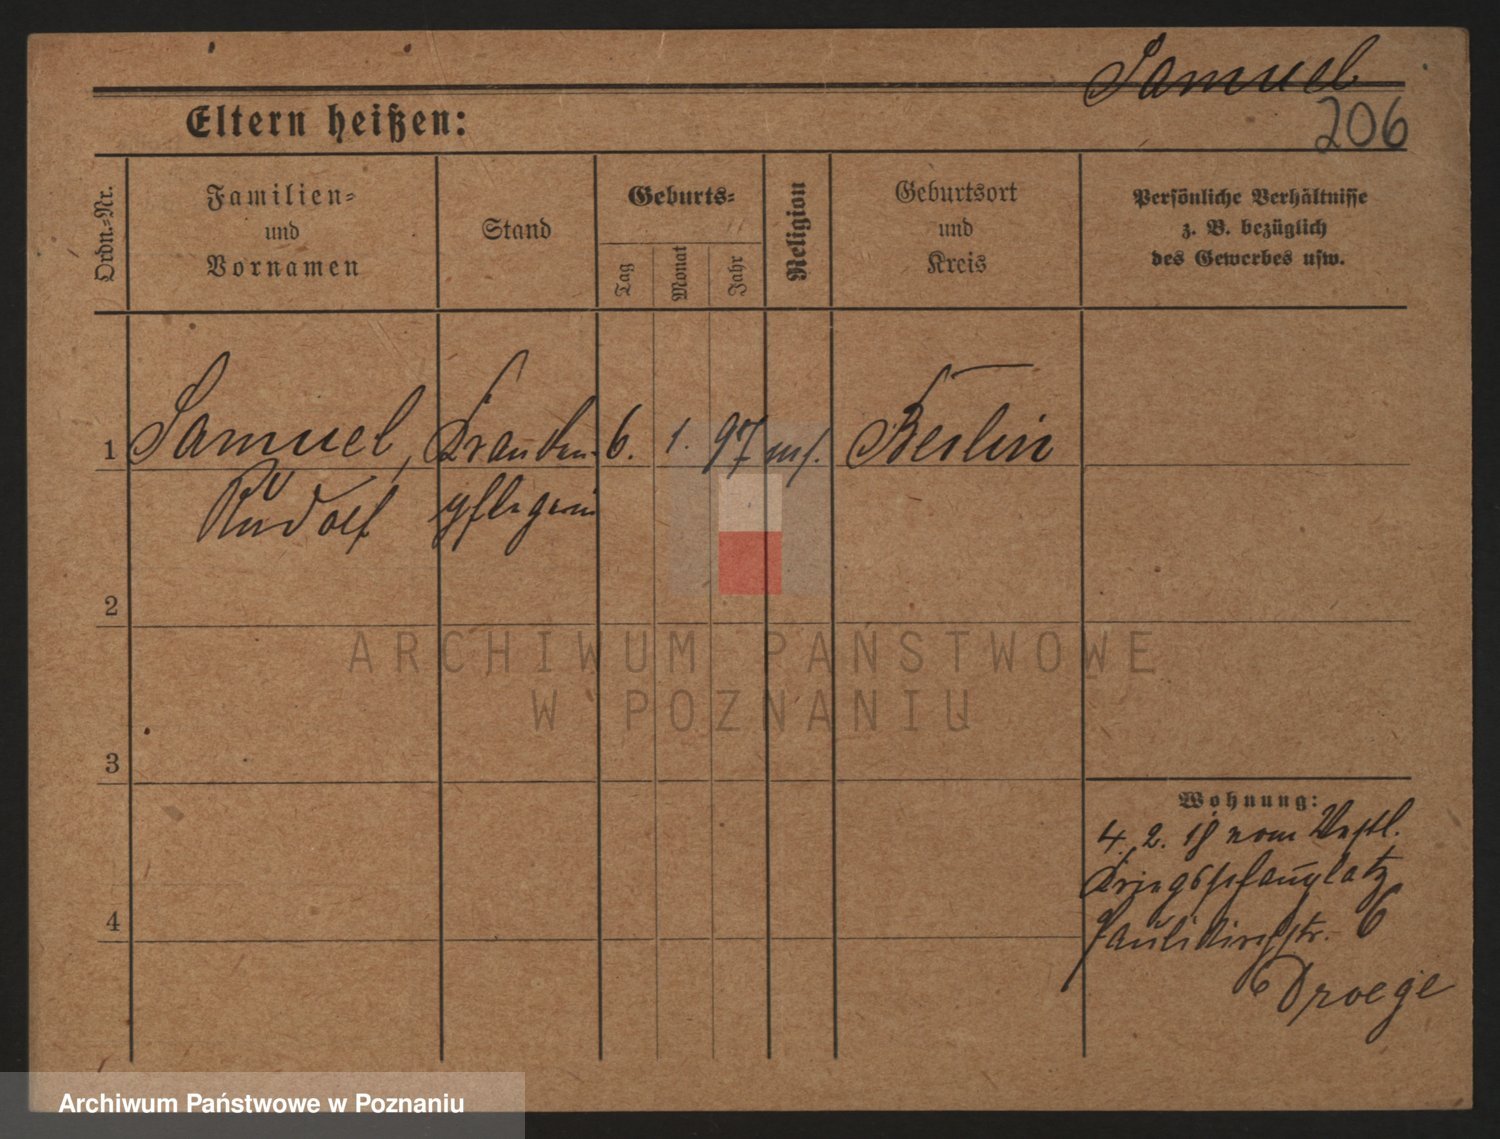 Samuel
206
Eltern heißen:
Ordn.-Nr.
Familien-
und
Vornamen
Stand
Geburts-
Tag
Monat
Jahr
Religion
Geburtsort
und
Kreis
Persönliche Verhältnisse
z. B. bezüglich
des Gewerbes usw.
1
Samuel,
Rudolf
Kranken-
6.
1.
97
Berlin
2
3
4
Wohnung:
4. 2. 18 vom
Paulikirchstr. 6
b Droege
ARCHIWUM PAŃSTWOWE
W POZNANIU
Archiwum Państwowe w Poznaniu